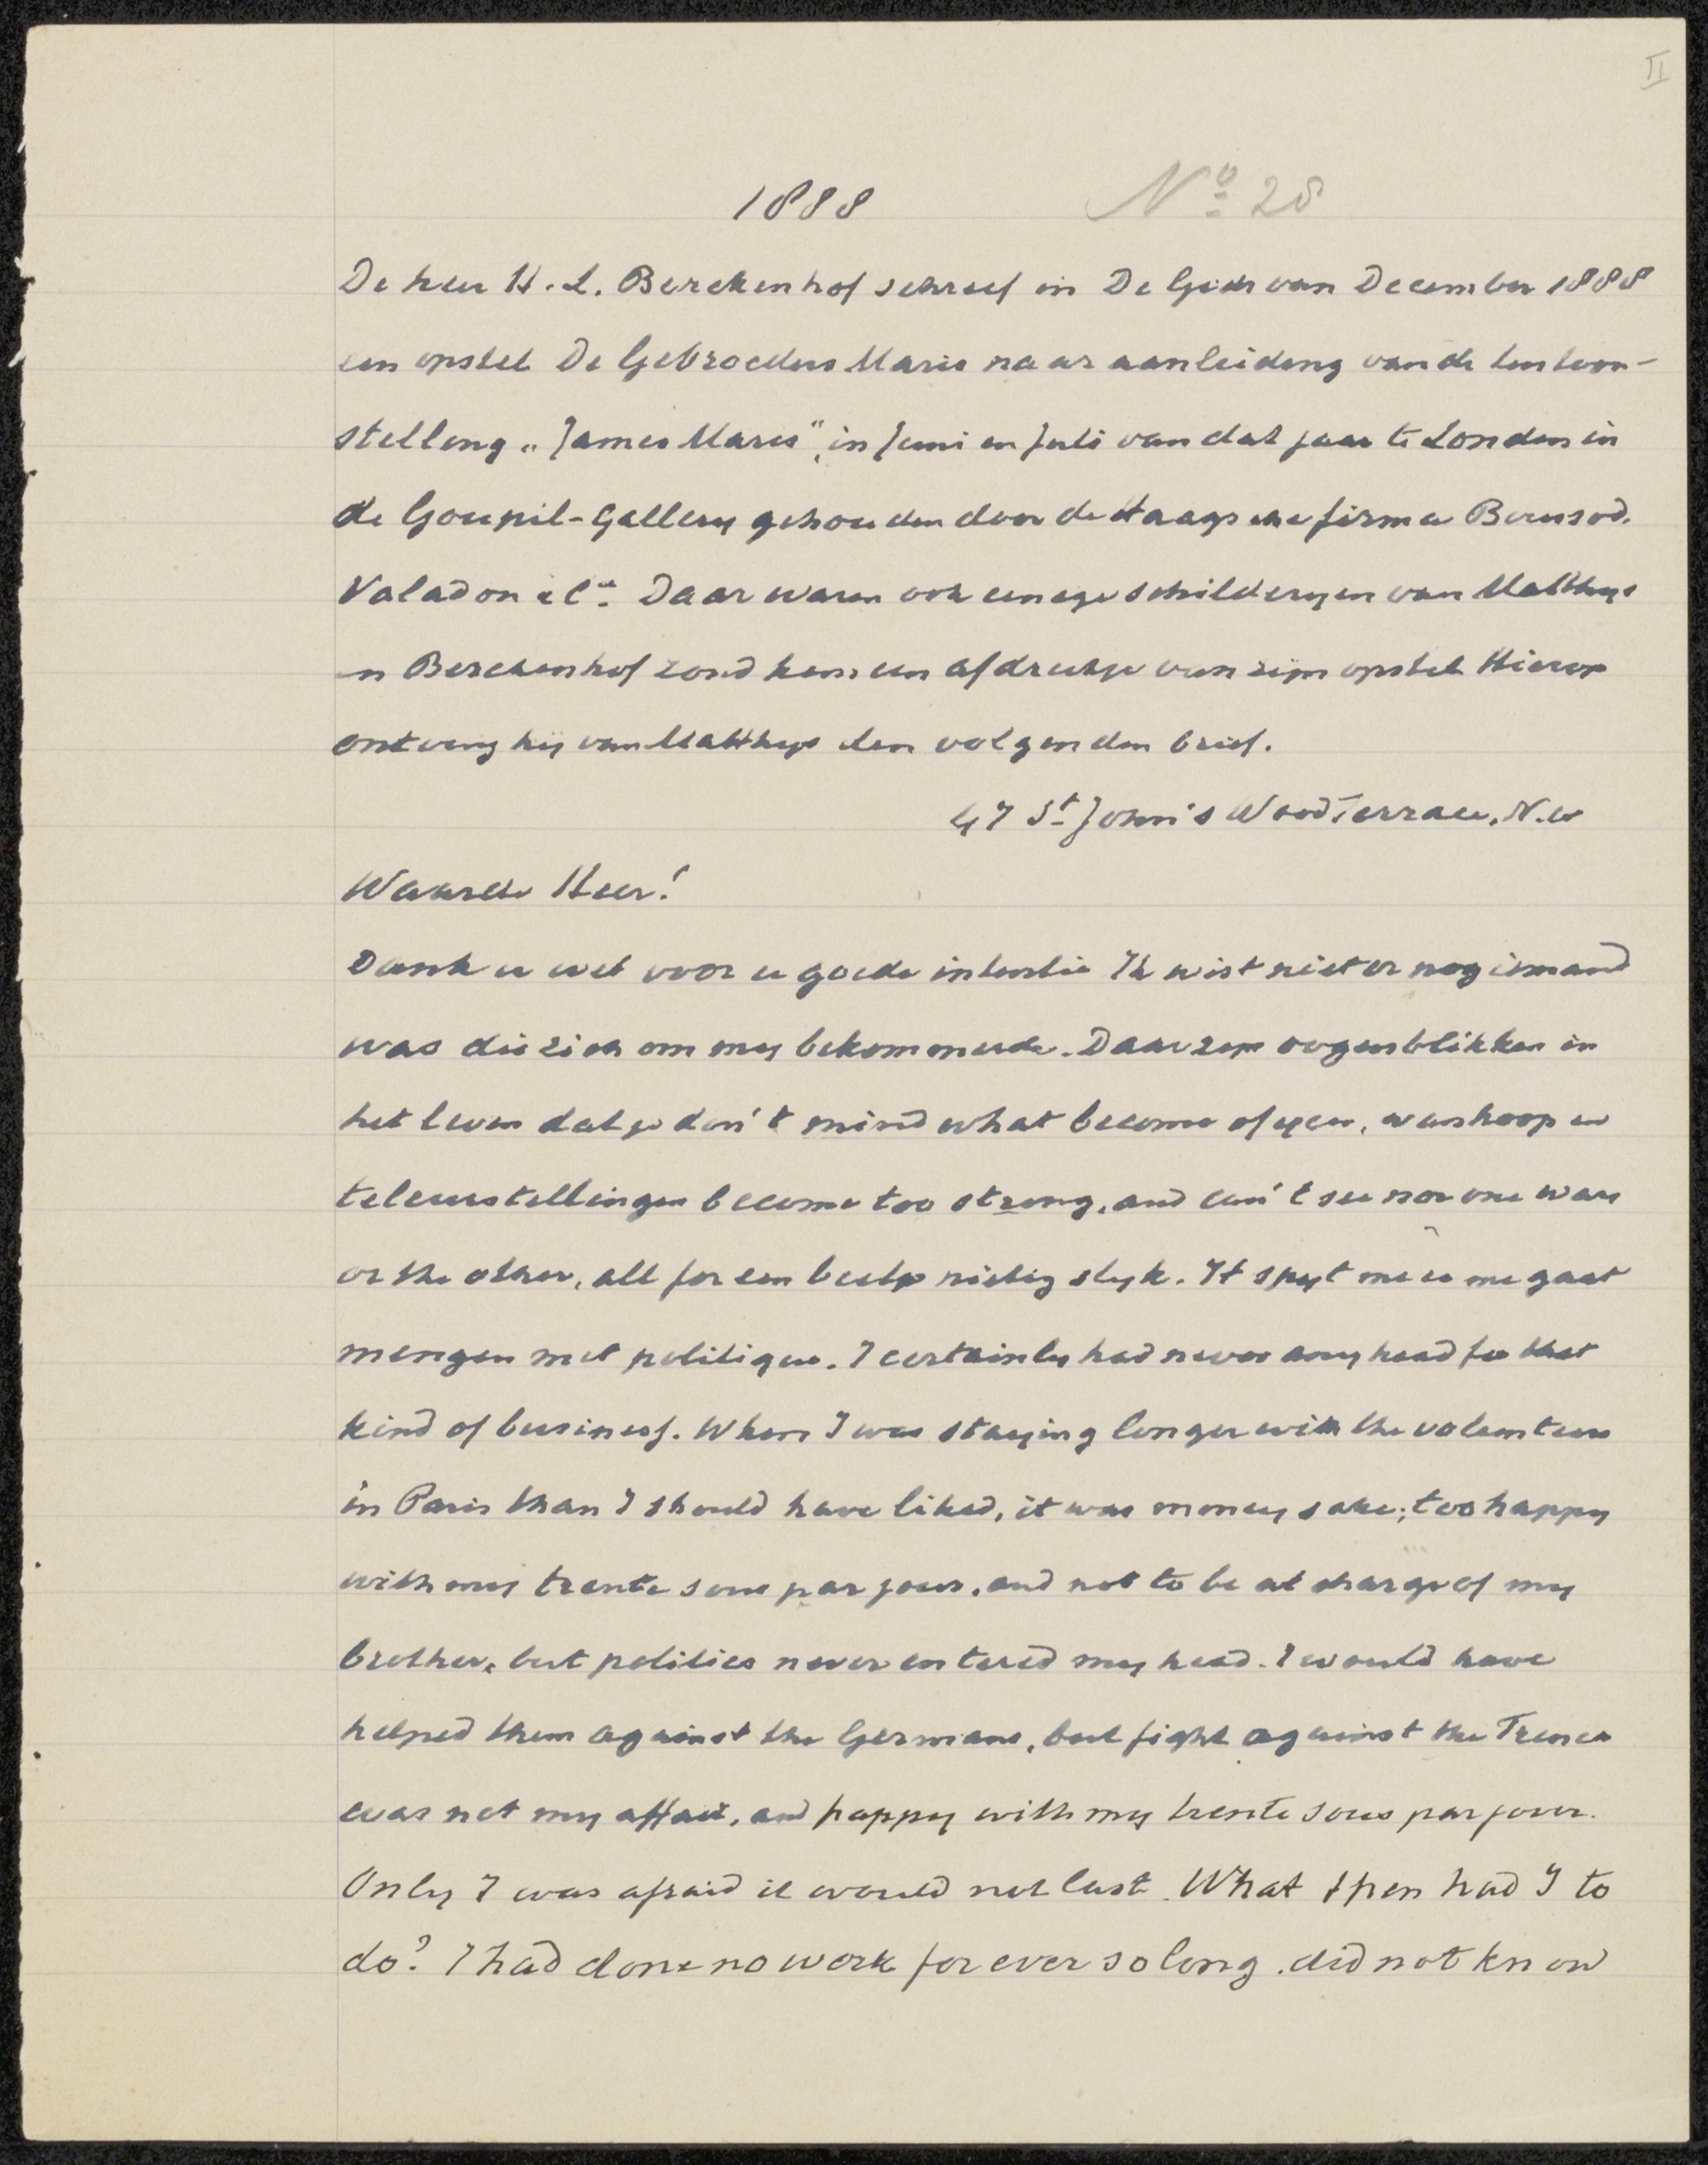 II
1888 No 28
De heer H. L. Berckenhof schreef in De Gids van December 1888
een opstel De Gebroeders Maris naar aanleiding van de tentoon-
stelling „James Maris", in Juni en Juli van dat jaar te Londen in
de Goupil-Gallery gehouden door de Haagsche firma Boussod.
Valadon & Cie. Daar waren ook eenige schilderyen van Matthys
en Berckenhof zond hem een afdrukje van zijn opstel Hierop
ontving hij van Matthys den volgenden brief.
47 St John's Wood Terrace. N.W
Waarde Heer!
Dank u wel voor u goede intentie Ik wist niet er nog iemand
was die zich om my bekommerde. Daar zyn oogenblikken in
het leven dat je don't mind what become of you, wanhoop en
teleurstellingen become too strong, and can't see nor one way
or the other, all for een beetje nietig slyk. It spyt me u me gaat
mengen met politique. I certainly had never any head for that
kind of business. When I was staying longer with the volunteers
in Paris than I should have liked, it was money sake; too happy
with my trente sous par jour, and not to be at charge of my
brother, but politics never entered my head. I would have
helped them against the Germans, but fight against the French
was not my affair, and happy with my trente sous par jour.
Only I was afraid it would not last. What then had I to
do? I had done no work for ever so long. did not know